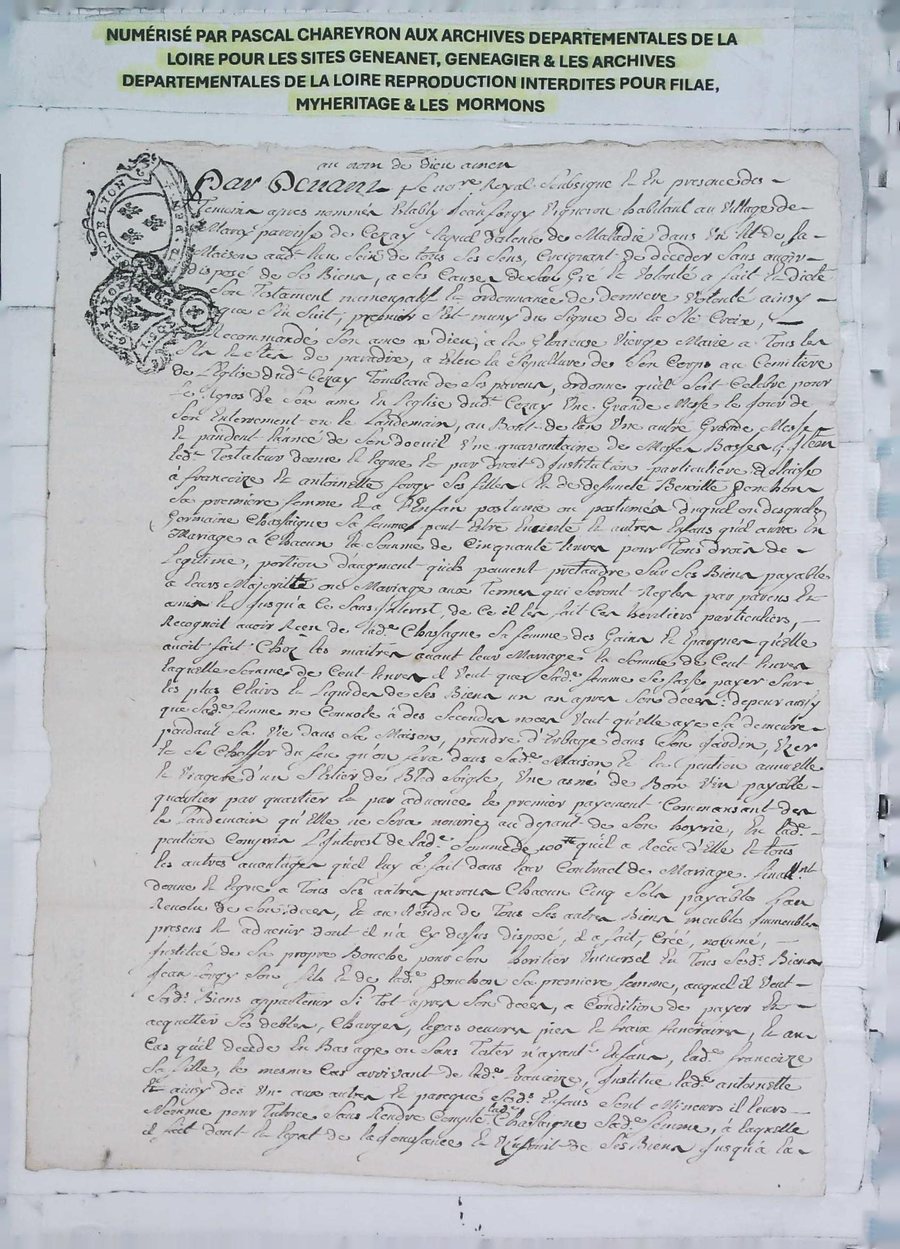 NUMÉRISÉ PAR PASCAL CHAREYRON AUX ARCHIVES DEPARTEMENTALES DE LA
LOIRE POUR LES SITES GENEANET, GENEAGIER & LES ARCHIVES
DEPARTEMENTALES DE LA LOIRE REPRODUCTION INTERDITES POUR FILAE,
MYHERITAGE & LES MORMONS
au nom de Dieu amen
GEN. DE LYON
Par Devant le no.re Royal Soubsigné et en presence des
Temoins apres nommés Etably Jean forgy Vigneron habitant au Village de
paroisse de Cezay lequel detenu de Maladie dans Un lit de sa
Maison sein de tous ses sens, Craignant de deceder sans avoir
disposé de ses Biens, a ses Causes de son Gré et Volonté a fait et dicté
son Testament nuncupatif et ordonnance de derniere Volonté ainsy
que s'en suit, premier s'est muny du signe de la Ste Croix,
Recommandé son ame a dieu, a la Glorieuse Vierge Marie a Tous les
Sts et Stes de paradis, a Eleu la sepulture de son Corps au Cimitiere
de l'Eglise dud. Cezay Tombeau de ses parens, ordonne quil soit Celebré pour
le Repos de son ame En l'eglise dud. Cezay Une Grande Messe le jour de
son Enterrement ou le Landemain, au Bout de l'an Une autre Grande Messe
et pandent l'année de son doeuil Une quarantaine de Messes Basses; Item
led. Testateur donne et legue et par droit d'Institution particuliere delaisse
à francoize et antoinette forgy ses filles et de deffunte Benoitte ponchon
sa premiere femme et a l'Enfan postume ou postumes duquel ou desquels
Germaine Chassaigne sa femme peut Etre Enceinte et autres Enfans quil aura En
Mariage a Chacun la somme de Cinquante livres pour Tous droits de
Legitime, portion d'augment quils peuvent pretandre sur ses Biens payable
a leurs Majorité ou Mariage aux Termes qui seront Reglés par parens et
amis et jusqu'a ce sans Interest, de ce il les fait ses heritiers particuliers,
Recognoit avoir Receu de lad.e Chassagne sa femme des Gains et Epargnes qu'elle
avoit fait Chez les maitres avant leur Mariage la somme de Cent livres
laquelle somme de Cent livres il Veut que sad.e femme se fasse payer sur
les plus Clairs et Liquides de ses Biens un an apres son décès;
que sad.e femme ne Convole à des secondes noces Veut qu'elle aye sa demeure
pandant sa Vie dans sa Maison, prendre d'Erbage dans son jardin, Uzer
et se Chauffer du feu qu'on fera dans sad.e Maison et la pention annuelle
et Viagere d'un Setier de Bled Soigle, Une asnée de Bon Vin payable
quartier par quartier et par advance le premier payement Commansant des
le Landemain qu'Elle ne sera nourrie au depant de son hoyrie, En lad.
pention Compris L'Interest de lad.e somme de 100tt qu'il a Receu d'Elle et tous
les autres avantages quil luy a fait dans leur Contract de Mariage. finall.nt
donne et legue a Tous ses autres parens Chacun Cinq sols payable l'an
Revolu de son deces, et au Residu de Tous ses autres Biens meubles Immeubles
presens et advenir dont il n'a Cy dessus disposé, il a fait, Créé, nommé,
Institué de sa propre Bouche pour son heritier Universel En tous sesd. Biens
Jean forgy son fils et de lad.e ponchon sa premiere femme, auquel il Veut
sesd. Biens appartenir si Tot apres son deces, a Condition de payer et
acquetter ses debtes, Charges, legas oeuvres pies et fraix funeraires, et au
Cas quil decede En Bas age ou sans Tester n'ayant Enfans, lad.e francoize
sa fille, le mesme Cas arrivant de lad.e francoize, Institue lad.e antoinette
et ainsy des Uns aux autres et parceque sesd. Enfans sont Mineurs il leurs
Nomme pour Tutrice sans Rendre Compte lad.e Chassaigne sad.e femme, à laquelle
il fait dont et legat de la Jouissance et Uzufruit de ses Biens jusqu'à la